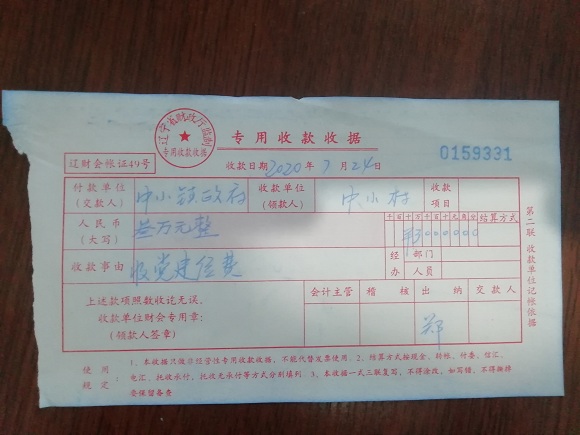 辽宁省财政厅监制
专用收款收据
专用收款收据
辽财会帐证49号
收款日期2020年7月24日
0159331
付款单位
(交款人)
中小镇政府
收款单位
(领款人)
中小村
收款
项目
人民币
(大写)
叁万元整
千百十万千百十元角分
结算方式
¥3000000
收款事由
收党建经费
经 部门
办 人员
上述款项照数收讫无误。
收款单位财会专用章:
(领款人签章)
会计主管
稽 核
出 纳
交款人
郑
第二联 收款单位记帐依据
使用
规定
1、本收据只做非经营性专用收款收据,不能代替发票使用。2、结算方式按现金、转帐、付委、信汇、
电汇、托收承付,托收无承付等方式分别填列。3、本收据一式三联复写,不得涂改,如写错,不得撕掉
要保留备查